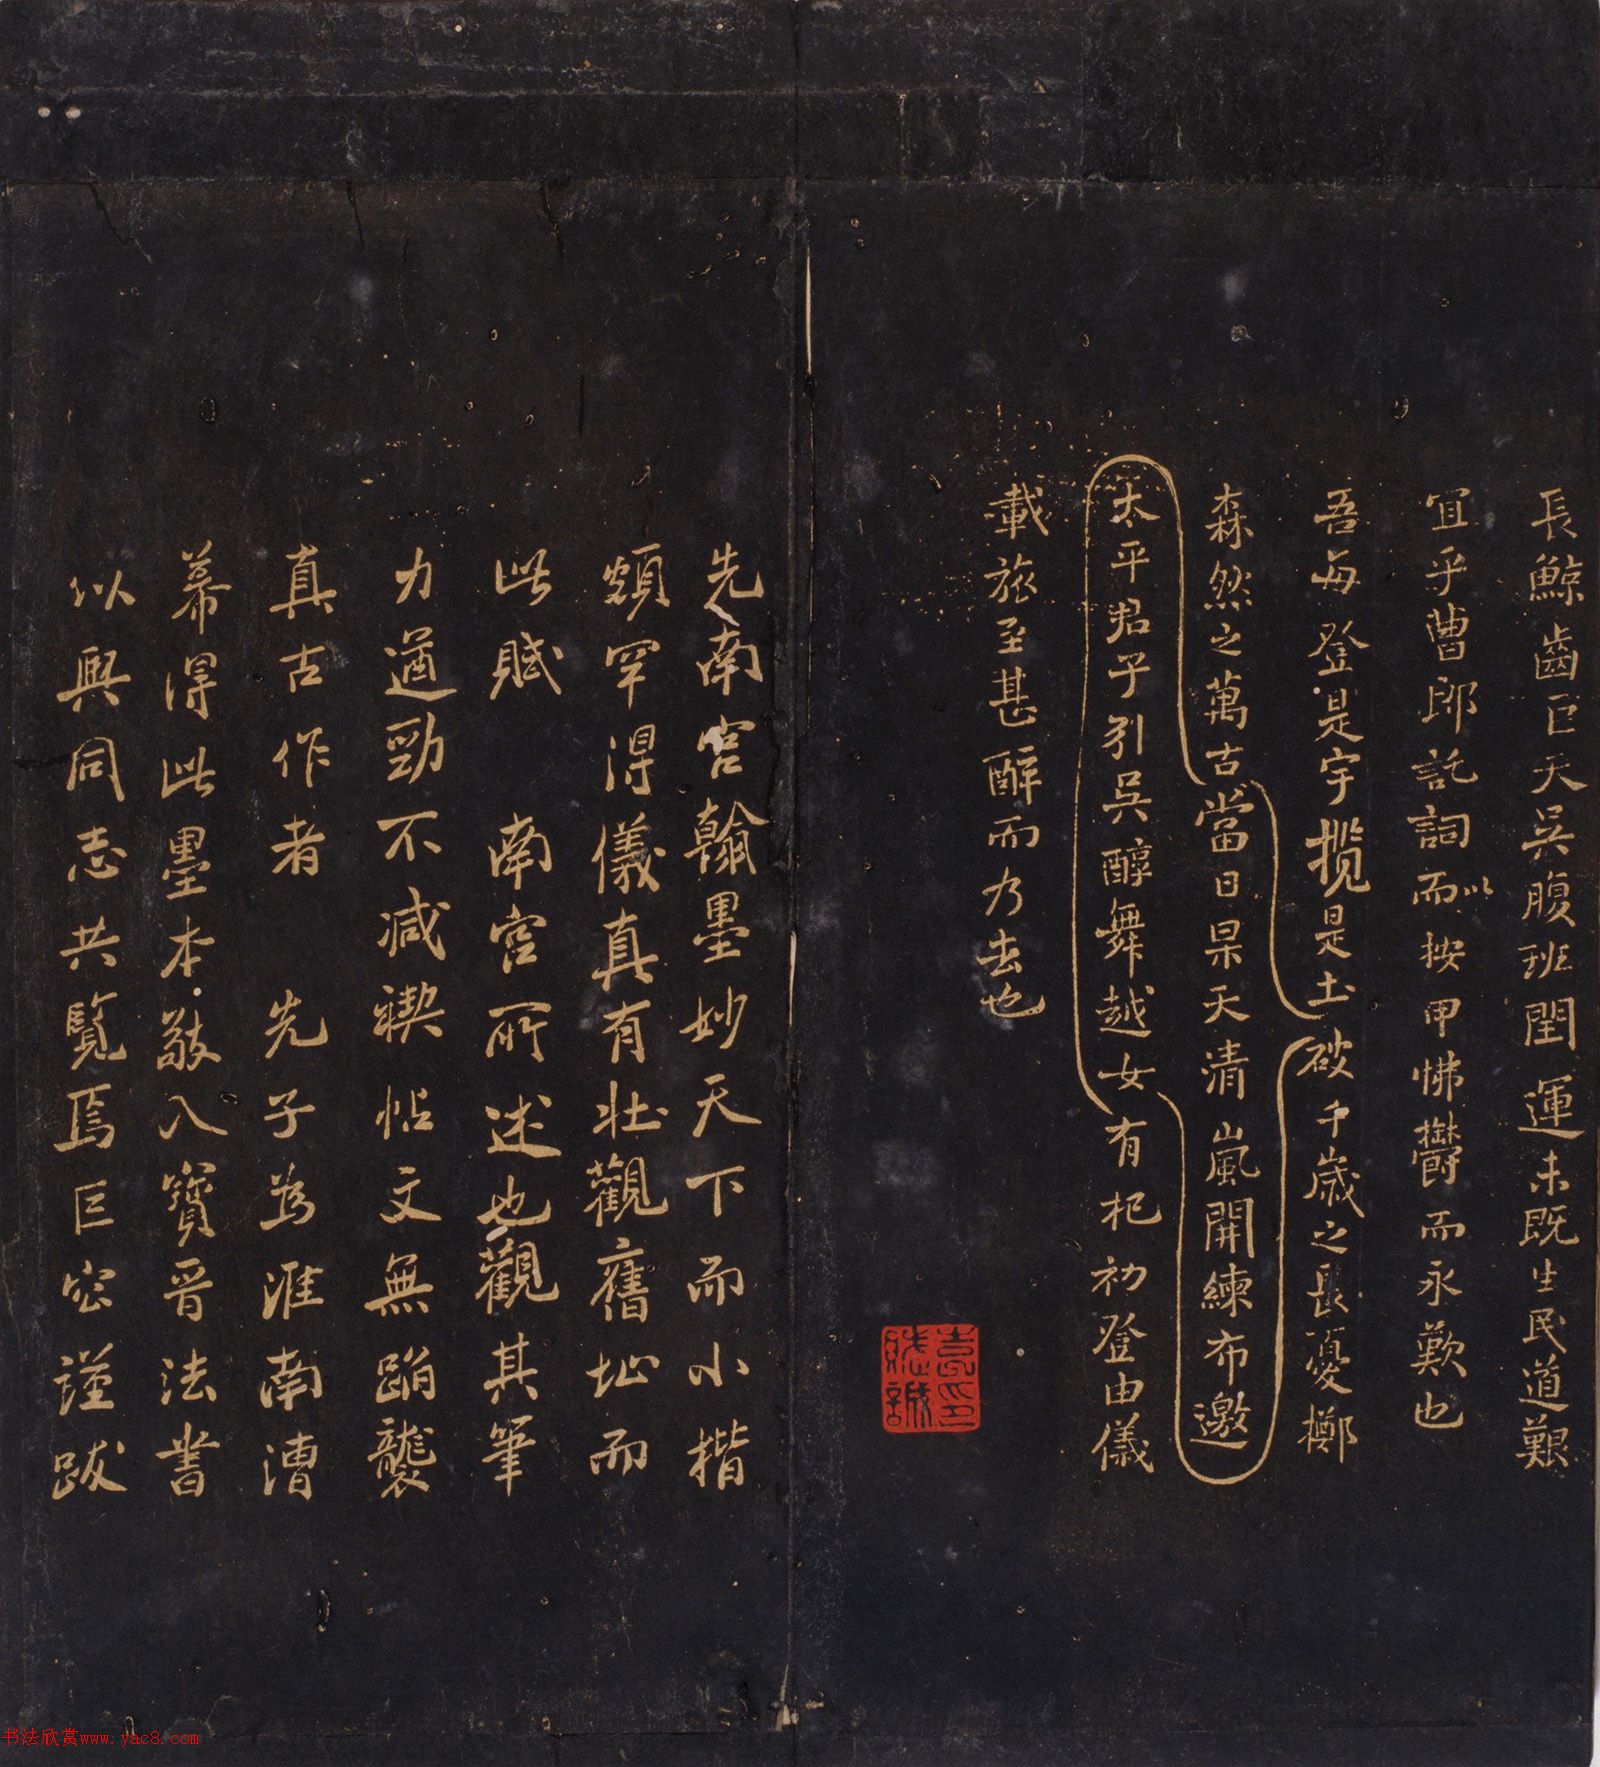 長鯨齒巨天吳腹班閏運未既生民道艱
宜乎曹郎託詞而以按甲怫鬱而永歎也
吾每登是宇攬是土破千歲之長憂擲
森然之萬古當日杲天清嵐開練布邀
太平君子引吳醇舞越女有杞初登由儀
載旅至甚醉而乃去也
先南宮翰墨妙天下而小楷
頗罕得儀真有壯觀舊址而
此賦 南宮所述也觀其筆
力遒勁不減禊帖文無蹈襲
真古作者 先子為淮南漕
幕得此墨本敬入寶晉法書
以與同志共覽焉巨容謹跋
书法欣赏www.yac8.com